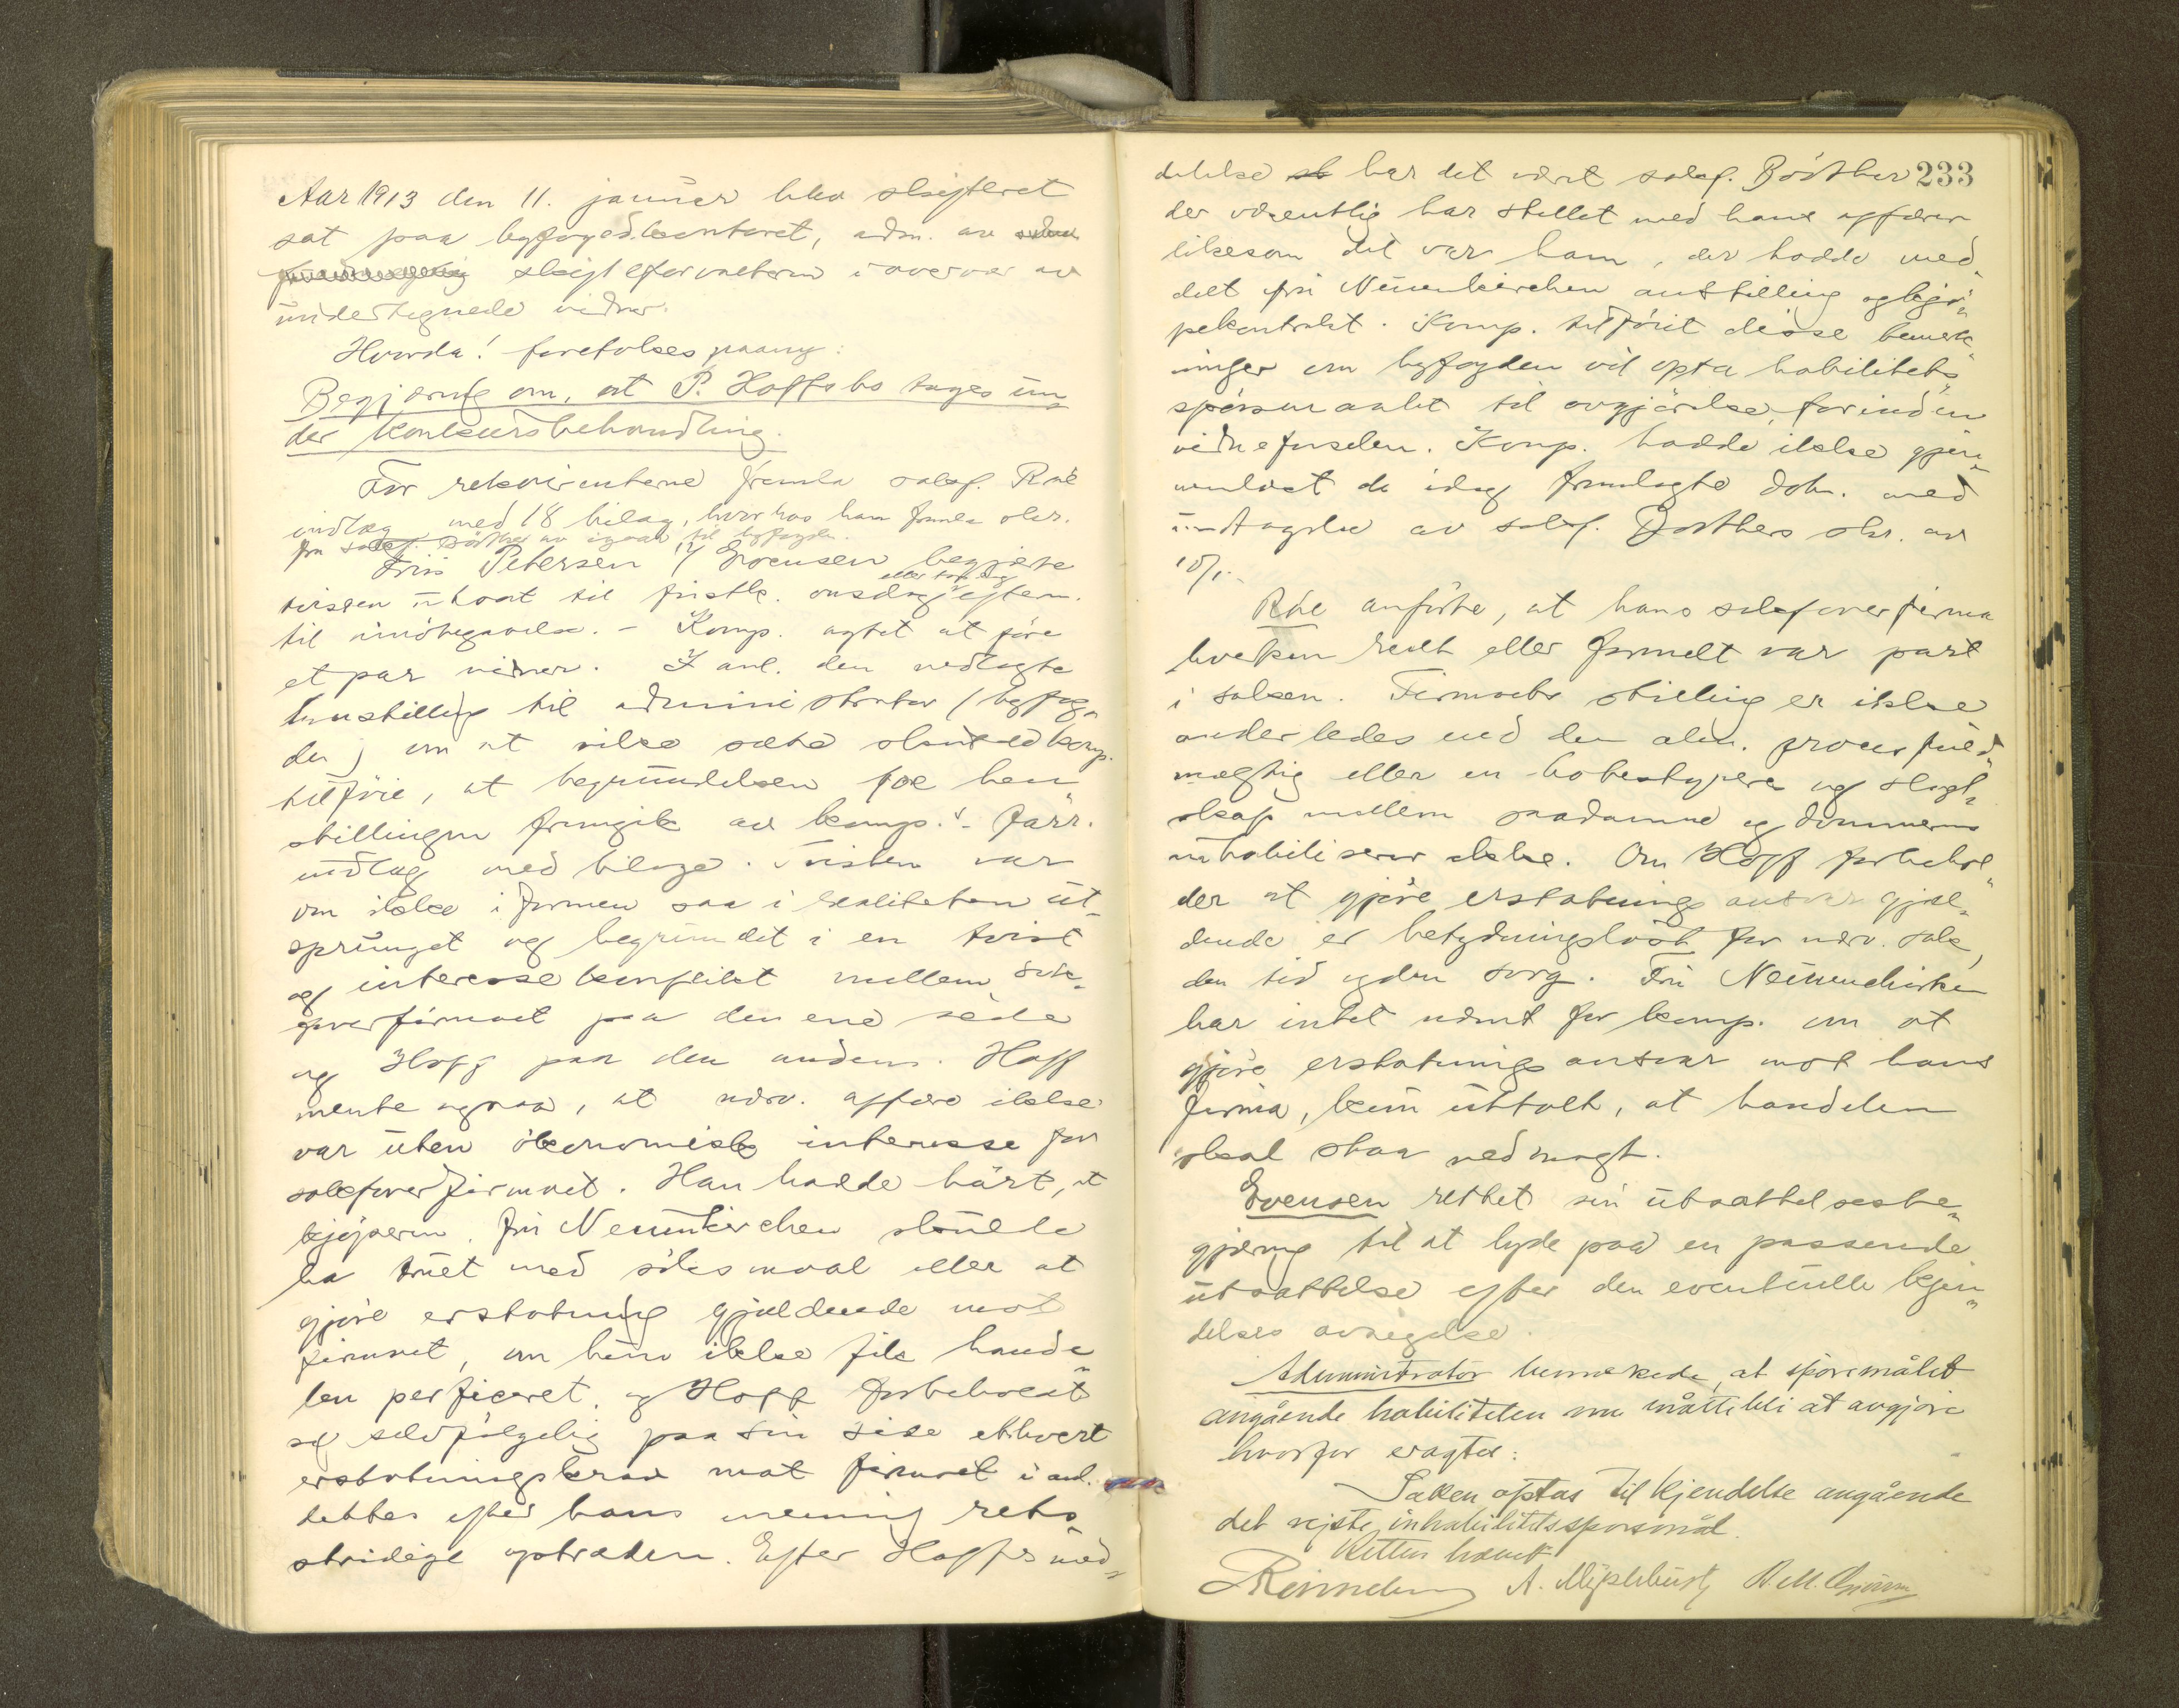 Aar 1913 den 11. januar blev skifteret
sat paa byfogedkontoret, adm. av
skifteforvalteren i overvær av
undertegnede vidner.
Hvorda! foretokes paany:
Begjæring om, at P. Hoffs bo tages un„
der konkursbehandling.
For rekvirenterne fremla sakf. Roé
indlæg med 18 bilag, hvorhos han fremla skr.
fra sakf. Böttker av igaar til byfogden.
Friis Petersen v/ Evensen begjærte
tvisten utsat til førstk. onsdag eller torsdag eftm.
til imötegaaelse. – Komp. agtet at före
et par vidner. I anl. den nedlagte
henstilling til administrator (byfog„
den) om at vike sæte skulde komp.
tilföie, at begrundelsen for hen„
stillingen fremgik av komp.s förr.
indlæg med bilage. Tvisten var
om ikke i formen saa i realiteten ut„
sprunget og begrundet i en tvist
og interessekonflikt mellem sak„
förerfirmaet paa den ene side
og Hoff paa den anden. Hoff
mente ogsaa, at nærv. affære ikke
var uten ökonomisk interesse for
sakförerfirmaet. Han hadde hört, at
kjöperen, fru Neumkirchen skulde
ha truet med söksmaal eller at
gjöre erstatning gjældende mot
firmaet, om hun ikke fik hande„
len perficeret, og Hoff forbeholdt
sig selvfölgelig paa sin side ethvert
erstatningskrav mot firmaet i anl.
dettes efter hans mening rets„
stridige optræden. Efter Hoffs med„
233
delelse har det været sakf. Böttker
der væsentlig har stellet med hans affærer
likesom det var ham, der hadde med„
delt fru Neumkirchen anstilling og kjö„
pekontrakt. Komp. tilföiet disse bemerk„
ninger om byfogden vil opta habilitets„
spörsmaalet til avgjörelse forinden
vidneförselen. Komp. hadde ikke gjen„
nemlæst de idag fremlagte dok. med
undtagelse av sakf. Böttkers skr. av
10/1.
Roé anförte, at hans sakförerfirma
hverken reelt eller formelt var part
i saken. Firmaets stilling er ikke
anderledes end den alm. procesfuld„
mægtig eller en hovedstyrer og slegt„
skap mellem saadanne og dommeren
inhabiliserer ikke. Om Hoff forbehol„
der at gjöre erstatningsansvar gjæl„
dende er betydningslöst for nærv. sak,
den tid egden sorg. Fru Neumenchirken
har intet nævnt for komp. om at
gjöre erstatningsansvar mot hans
firma, kun uttalt, at handelen
skal staa ved magt.
Evensen rettet sin utsættelsesbe„
gjæring til at lyde paa en passende
utsættelse efter den eventuelle kjen„
delses avsigelse.
Administrator bemerkede, at spörsmålet
angående habiliteten nu måtte bli at avgjöre
hvorfor eragtet:
Saken optas til kjendelse angående
det rejste inhabilitetsspörsmål.
Retten hævet
A. Myklebust